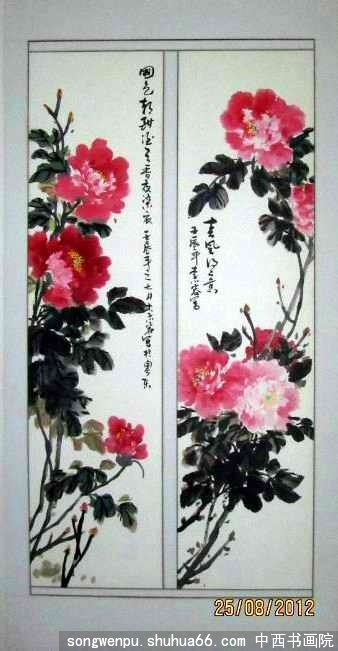 國色朝酣酒天香夜染衣
壬辰年之七月
春風得意
壬辰年
25/08/2012
songwenpu.shuhua66.com 中西书画院